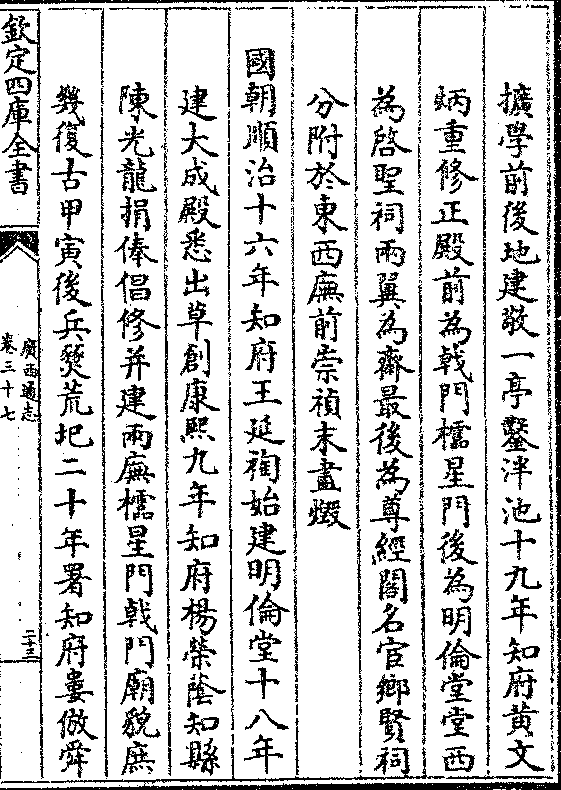 擴學前後地建敬一亭鑿泮池十九年知府黄文
炳重修正殿前為㦸門櫺星門後為明倫堂堂西
為啓聖祠兩翼為齋最後為尊經閣名宦鄉賢祠
分附於東西廡前崇禎末盡燬
國朝順治十六年知府王延祹始建明倫堂十八年
建大成殿悉出草創康熙九年知府楊榮蔭知縣
陳光龍捐俸倡修并建兩廡櫺星門㦸門廟貌庶
幾復古甲寅後兵燹荒圮二十年署知府婁倣舜
欽定四庫全書
廣西通志
卷三十七
二十三